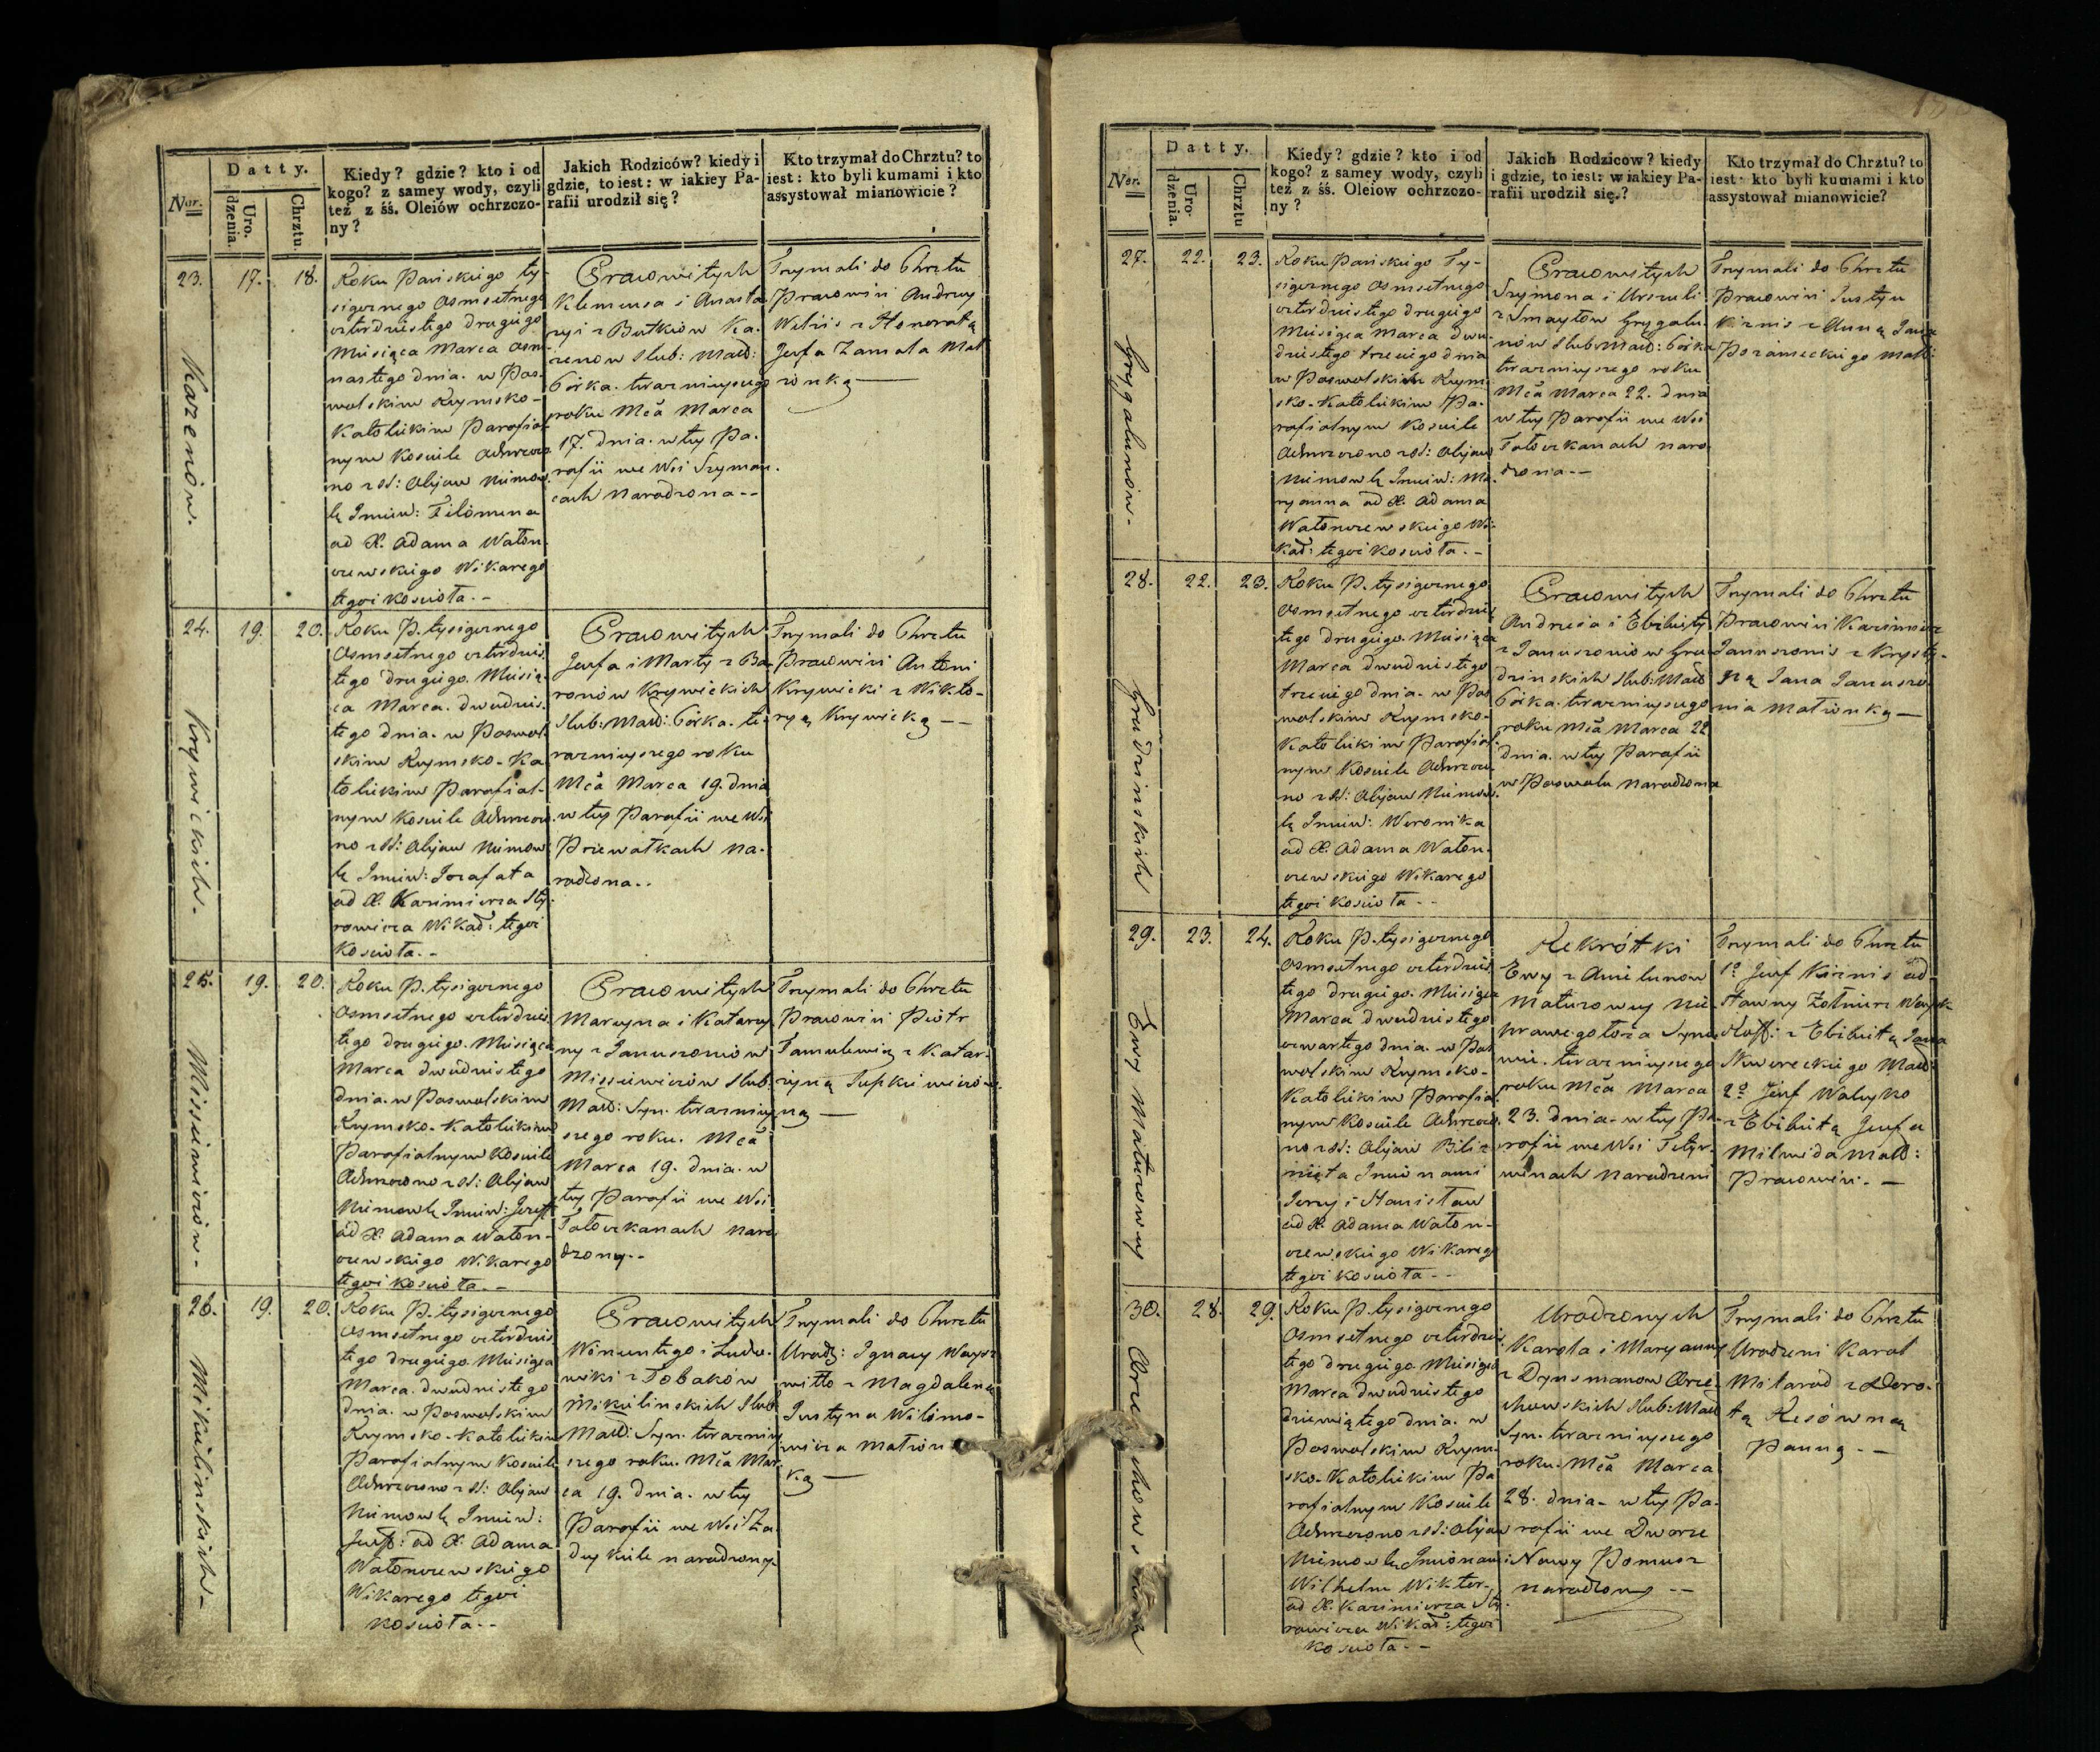 Datty.
Ner.
Uro-
dzenia.
Chrztu.
Kiedy? gdzie? kto i od
kogo? z samey wody, czyli
też z śś. Oleiów ochrzczo-
ny?
Jakich Rodziców? kiedy i
gdzie, to iest: w iakiey Pa-
rafii urodził się?
Kto trzymał do Chrztu? to
iest: kto byli kumami i kto
assystował mianowicie?
23. 17. 18.
Kazenów.
Roku Pańskiego ty-
siącznego Osmsetnego
czterdziestego drugiego
Miesiąca Marca Osm-
nastego dnia. w Pos-
wolskim Rzymsko-
Katolickim Parafial
nym Kosciele Ochrzczo
no z SS: Olijow Niemow
lę Imien: Filomena
od X. Adama Waton-
czewskiego Wikarego
tegoż Koscioła. -
Pracowitych
Klemensa i Anasta
zyi z Butkiów Ka-
zenow Slub: Mał:
Córka. teraznieyszego
roku Mca Marca
17. dnia. w tey Pa-
rafii we Wsi Szyman-
cach Narodzona --
Trzymali do Chrztu
Pracowici Andrzey
Welsis z Honoratą
Jozefa Zamala Mał
zonką
24. 19. 20.
Krzywickich.
Roku P. tysiącznego
Osmsetnego czterdzies
tego drugiego. Miesią-
ca Marca. dwudzies-
tego dnia. w Poswol
skim Rzymsko-Ka
tolickim Parafial-
nym Kosciele Ochrzczo
no z SS: Olijow Niemow
lę Imien: Jozafata
od X. Kazimierza Sty-
rowicza Wikar: tegoż
Koscioła. -
Pracowitych
Jozefa i Marty z Ba
ronów Krzywickich
Slub: Mał: Córka. te-
raznieyszego roku
Mca Marca 19. dnia
w tey Parafii we Wsi
Przewałkach na-
rodzona..
Trzymali do Chrztu
Pracowici Antoni
Krzywicki z Wikto-
ryą Krzywicką --
25. 19. 20.
Missiewiczów.
Roku P. tysiącznego
Osmsetnego czterdzies
tego drugiego. Miesiąca
Marca dwudziestego
dnia. w Poswolskim
Rzymsko-Katolickim
Parafialnym Kosciele
Ochrzczono z SS: Olijow
Niemowlę Imien: Jozeff
od X. Adama Waton-
czewskiego Wikarego
tegoż Koscioła. -
Pracowitych
Marcyna i Katarzy
ny z Januszoniow
Missiewiczów Slub
Mał: Syn. terazniey
szego roku. Mca
Marca 19. dnia. w
tey Parafii we Wsi
Tołoczkanach naro
dzony..
Trzymali do Chrztu
Pracowici Piotr
Tamulewicz z Katar-
zyną Jupkiewiczo-
ną
26. 19. 20.
Mikulinskich
Roku P. tysiącznego
Osmsetnego czterdzies
tego drugiego. Miesiąca
Marca. dwudziestego
dnia. w Poswolskim
Rzymsko-Katolickim
Parafialnym Kosciele
Ochrzczono z SS: Olijow
Niemowlę Imien:
Jozeff: od X. Adama
Watonczewskiego
Wikarego tegoż
Koscioła..
Pracowitych
Wincentego i Ludo-
wiki z Tobaków
Mikulinskich Slub
Mał: Syn. teraźniey
szego roku. Mca Mar
ca 19. dnia. w tey
Parafii we Wsi Za
deykiele narodzony
Trzymali do Chrztu
Urodz: Ignacy Woysz
wiłło z Magdaleną
Justyna Wilimo-
wicza Małżon
ką
Datty.
Nor.
Uro-
dzenia.
Chrztu
Kiedy? gdzie? kto i od
kogo? z samey wody, czyli
też z śś. Oleiow ochrzczo-
ny?
Jakich Rodzicow? kiedy
i gdzie, to iest: w iakiey Pa-
rafii urodził się?
Kto trzymał do Chrztu? to
iest: kto byli kumami i kto
assystował mianowicie?
27. 22. 23.
Grygalunów.
Roku Pańskiego Ty-
siącznego Osmsetnego
czterdziestego drugiego
Miesiąca Marca dwu-
dziestego trzeciego dnia
w Poswolskim Rzym
sko-Katolickim Pa-
rafialnym Kosciele
Ochrzczono z SS: Olijow
Niemowlę Imien: Ma
ryanna od X. Adama
Watonczewskiego Wi-
kar: tegoż Koscioła. -
Pracowitych
Szymona i Urszuli
z Smaytów Grygalu-
nów Slub: Mał: Córka
teraznieyszego roku
Mca Marca 22. dnia
w tey Parafii we Wsi
Tołoczkanach naro
dzona --
Trzymali do Chrztu
Pracowici Justyn
Kirnis z Anną Jana
Pozarnieckiego Małż:
28. 22. 23.
Grudzinskich
Roku P. tysiącznego
Osmsetnego czterdzies
tego drugiego. Miesiąca
Marca dwudziestego
trzeciego dnia. w Pos
wolskim Rzymsko-
Katolickim Parafial
nym Kosciele Ochrzczo
no z SS: Olijow Niemow
lę Imien: Weronika
od X. Adama Waton-
czewskiego Wikarego
tegoż Koscioła --
Pracowitych
Andrzeia i Elzbiety
z Januszoniow Gru
dzinskich Slub: Mał
Córka. teraznieyszego
roku Mca Marca 22
dnia. w tey Parafii
w Poswolu narodzona
Trzymali do Chrztu
Pracowici Kazimierz
Januszonis z Krysty-
ną Jana Januszo-
nia Małżonką
29. 23. 24.
Ewy Matuzowey
Roku P. tysiącznego
Osmsetnego czterdzies
tego drugiego. Miesiąca
Marca dwudziestego
czwartego dnia. w Pos
wolskim Rzymsko-
Katolickim Parafial
nym Kosciele Ochrzczo
no z SS: Olijow Bliz
nięta Imionami
Jerzy i Stanisław
od X. Adama Waton-
czewskiego Wikarego
tegoż Koscioła --
Rekrótki
Ewy z Amilunow
Matuzowey Nie
prawego łoża Syno
wie. teraznieyszego
roku Mca Marca
23. dnia. w tey Pa-
rafii we Wsi Tetyr-
winach narodzeni
Trzymali do Chrztu
1o Jozef Kirnis od
stawny Zołnierz Woysk
Ross: z Elzbietą Jana
Skworeckiego Małż:
2o Jozef Waluyko
z Elzbietą Jozefa
Milwida Małż:
Pracowici. -
30. 28. 29.
Orzechowskich
Roku P. tysiącznego
Osmsetnego czterdzies
tego drugiego Miesiąca
Marca dwudziestego
dziewiątego dnia. w
Poswolskim Rzym-
sko-Katolickim Pa
rafialnym Kosciele
Ochrzczono z SS: Olijow
Niemowlę Imionami
Wilhelm Wiktor
od X. Kazimierza Sty
rowicza Wikar: tegoż
Koscioła --
Urodzonych
Karola i Maryanny
z Dynsmanow Orze-
chowskich Slub: Mał
Syn. teraznieyszego
roku. Mca Marca
28. dnia. w tey Pa-
rafii we Dworze
Nowy Pomusz
narodzony --
Trzymali do Chrztu
Urodzeni Karol
Mitarod z Doro-
tą Resówną
Panną. -